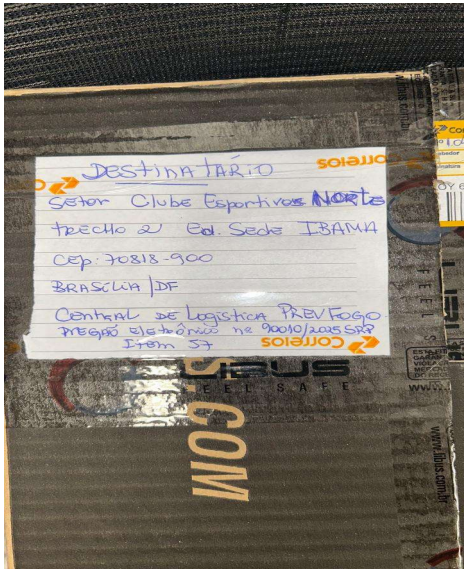 Correios
DESTINATÁRIO
Setor Clube Esportivos NORTE
TRECHO 2 Ed. Sede IBAMA
CEP: 70818-900
BRASÍLIA/DF
CENTRAL DE Logística PREVFOGO
PREGÃO Eletrônico nº 90010/2025 SRP
Item 57
Correios
LIBUS
FEEL SAFE
S.COM
www.libus.com.br